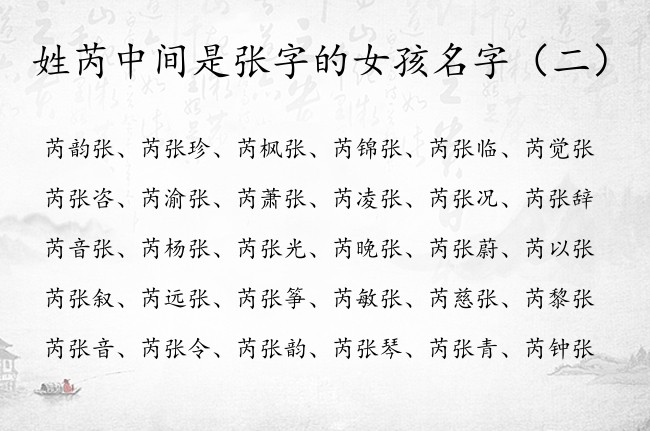 姓芮中间是张字的女孩名字（二）
芮韵张、芮张珍、芮枫张、芮锦张、芮张临、芮觉张
芮张咨、芮渝张、芮萧张、芮凌张、芮张况、芮张辞
芮音张、芮杨张、芮张光、芮晚张、芮张蔚、芮以张
芮张叙、芮远张、芮张筝、芮敏张、芮慈张、芮黎张
芮张音、芮张令、芮张韵、芮张琴、芮张青、芮钟张